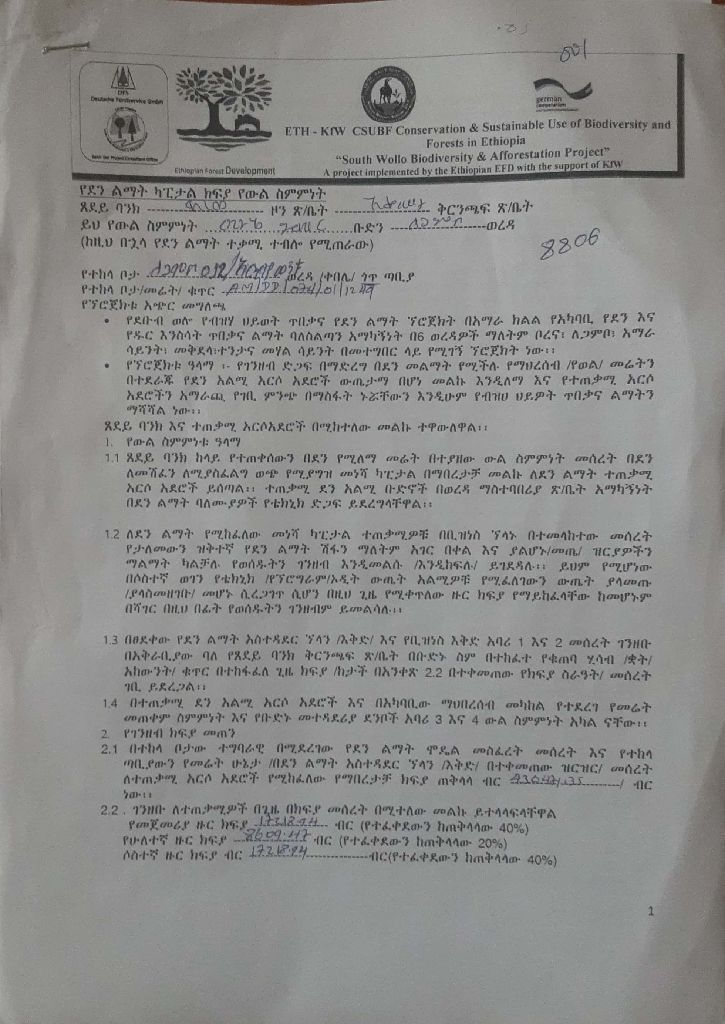 801
DFS
Deutsche Forstservice GmbH
Ethiopian Forest Development
german cooperation
ETH - KfW CSUBF Conservation & Sustainable Use of Biodiversity and
Forests in Ethiopia
“South Wollo Biodiversity & Afforestation Project”
A project implemented by the Ethiopian EFD with the support of KfW
የደን ልማት ካፒታል ክፍያ የውል ስምምነት
ጸደይ ባንክ ዞን ጽ/ቤት ቅርንጫፍ ጽ/ቤት
ይህ የውል ስምምነት ቡድን ወረዳ
(ከዚህ በኋላ የደን ልማት ተቃሚ ተብሎ የሚጠራው)
8806
የተከላ ቦታ ወረዳ /ቀበሌ/ ጎጥ ጣቢያ
የተከላ ቦታ/መሬት/ ቁጥር
የፕሮጀክቱ አጭር መግለጫ
• የደቡብ ወሎ የብዝሃ ህይወት ጥበቃና የደን ልማት ፕሮጀክት በአማራ ክልል የአካባቢ የደን እና
የዱር እንስሳት ጥበቃና ልማት ባለስልጣን አማካኝነት በ6 ወረዳዎች ማለትም ቦረና፣ ለጋምቦ፣ አማራ
ሳይንት፣ መቅደላ፣ተንታና መሃል ሳይንት በመተግበር ላይ የሚገኝ ፕሮጀክት ነው፡፡
• የፕሮጀክቱ ዓላማ ፡- የገንዘብ ድጋፍ በማድረግ በደን መልማት የሚችሉ የማህበረሰብ /የወል/ መሬትን
በተደራጁ የደን አልሚ አርሶ አደሮች ውጤታማ በሆነ መልኩ እንዲለማ እና የተጠቃሚ አርሶ
አደሮችን አማራጪ የገቢ ምንጭ በማስፋት ኑሯቸውን እንዲሁም የብዝሀ ህይዎት ጥበቃና ልማትን
ማሻሻል ነው፡፡
ጸደይ ባንክ እና ተጠቃሚ አርሶአደሮች በሚከተለው መልኩ ተዋውለዋል፡፡
1. የውል ስምምነቱ ዓላማ
1.1 ጸደይ ባንክ ከላይ የተጠቀሰውን በደን የሚለማ መሬት በተያዘው ውል ስምምነት መሰረት በደን
ለመሸፈን ለሚያስፈልግ ወጭ የሚያግዝ መነሻ ካፒታል በማበረታቻ መልኩ ለደን ልማት ተጠቃሚ
አርሶ አደሮች ይሰጣል፡፡ ተጠቃሚ ደን አልሚ ቡድኖች በወረዳ ማስተባበሪያ ጽ/ቤት አማካኝነት
በደን ልማት ባለሙያዎች የቴክኒክ ድጋፍ ይደረግላቸዋል፡፡
1.2 ለደን ልማት የሚከፈለው መነሻ ካፒታል ተጠቃሚዎቹ በቢዝነስ ፕላኑ በተመላከተው መሰረት
የታለመውን ዝቅተኛ የደን ልማት ሽፋን ማለትም አገር በቀል እና ያልሆኑ/መጤ/ ዝርያዎችን
ማልማት ካልቻሉ የወሰዱትን ገንዘብ እንዲመልሱ /እንዲከፍሉ/ ይገደዳሉ፡፡ ይህም የሚሆነው
በሶስተኛ ወገን የቴክኒክ /የፕሮግራም/ኦዲት ውጤት አልሚዎቹ የሚፈለገውን ውጤት ያላመጡ
/ያላስመዘገቡ/ መሆኑ ሲረጋገጥ ሲሆን በዚህ ጊዜ የሚቀጥለው ዙር ክፍያ የማይከፈላቸው ከመሆኑም
በሻገር በዚህ በፊት የወሰዱትን ገንዘብም ይመልሳሉ፡፡
1.3 በፀደቀው የደን ልማት አስተዳደር ፕላን /እቅድ/ እና የቢዝነስ እቅድ አባሪ 1 እና 2 መሰረት ገንዘቡ
በአቅራቢያው ባለ የጸደይ ባንክ ቅርንጫፍ ጽ/ቤት በቡድኑ ስም በተከፈተ የቁጠባ ሂሳብ /ቋት/
አካውንት/ ቁጥር በተከፋፈለ ጊዜ ክፍያ /ከታች በአንቀጽ 2.2 በተቀመጠው የክፍያ ስራዓት/ መሰረት
ገቢ ይደረጋል፡፡
1.4 በተጠቃሚ ደን አልሚ አርሶ አደሮች እና በአካባቢው ማህበረሰብ መካከል የተደረገ የመሬት
መጠቀም ስምምነት እና የቡድኑ መተዳደሪያ ደንቦች አባሪ 3 እና 4 ውል ስምምነት አካል ናቸው፡፡
2. የገንዘብ ክፍያ መጠን
2.1 በተከላ ቦታው ተግባራዊ በሚደረገው የደን ልማት ሞዴል መስፈረት መሰረት እና የተከላ
ጣቢያውን የመሬት ሁኔታ /በደን ልማት አስተዳደር ፕላን /እቅድ/ በተቀመጠው ዝርዝር/ መሰረት
ለተጠቃሚ አርሶ አደሮች የሚከፈለው የማበረታቻ ክፍያ ጠቅላላ ብር 43047.35 / ብር
ነው፡፡
2.2 . ገንዘቡ ለተጠቃሚዎች በጊዜ በክፍያ መሰረት በሚተለው መልኩ ይተላላፍላቸዋል
የመጀመሪያ ዙር ክፍያ 17218.94 ብር (የተፈቀደውን ከጠቅላላው 40%)
የሁለተኛ ዙር ክፍያ 8609.47 ብር (የተፈቀደውን ከጠቅላላው 20%)
ሶስተኛ ዙር ክፍያ ብር 17218.94 ብር(የተፈቀደውን ከጠቅላላው 40%)
1